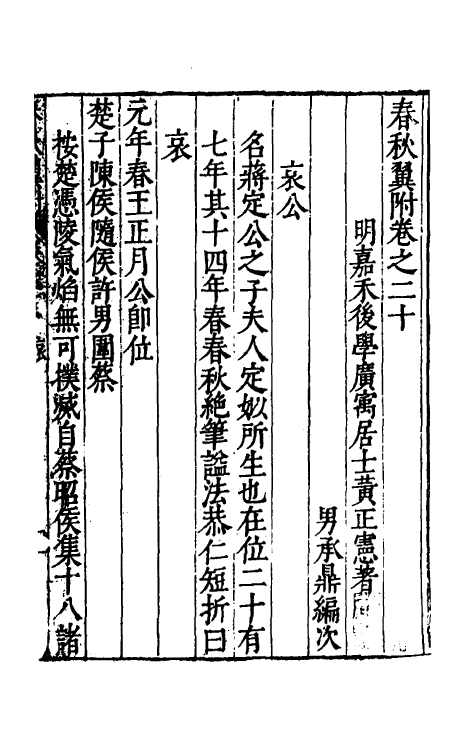 春秋翼附卷之二十
明嘉禾後學廣寓居士黃正憲著
男承鼎編次
哀公
名蔣定公之子夫人定姒所生也在位二十有
七年其十四年春春秋絶筆謚法恭仁短折曰
哀
元年春王正月公卽位
楚子陳侯隨侯許男圍蔡
按楚憑陵氣焰無可撲滅自蔡昭侯集十八諸